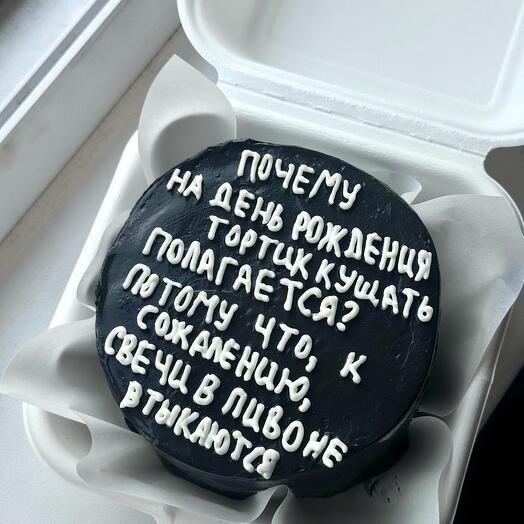 ПОЧЕМУ
НА ДЕНЬ РОЖДЕНИЯ
ТОРТИК КУШАТЬ
ПОЛАГАЕТСЯ?
ПОТОМУ ЧТО, К
СОЖАЛЕНИЮ,
СВЕЧИ В ПИВО НЕ
ВТЫКАЮТСЯ